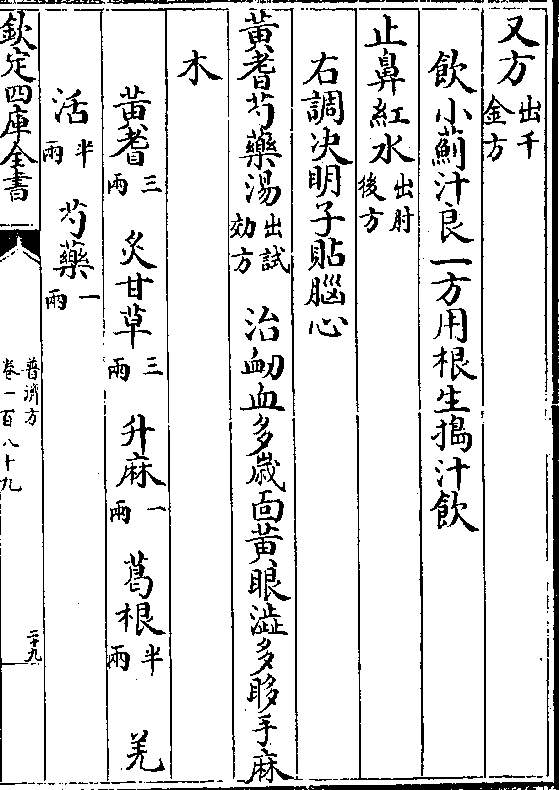 又方出千金方
飲小薊汁良一方用根生搗汁飲
止鼻紅水出肘後方
右調決明子貼腦心
黄耆芍藥湯出試効方 治衂血多歳面黄眼澁多眵手麻
木
黄耆三兩 炙甘草三兩 升麻一兩 葛根半兩 羌
活半兩 芍藥一兩
欽定四庫全書 普濟方 卷一百八十九 二十九